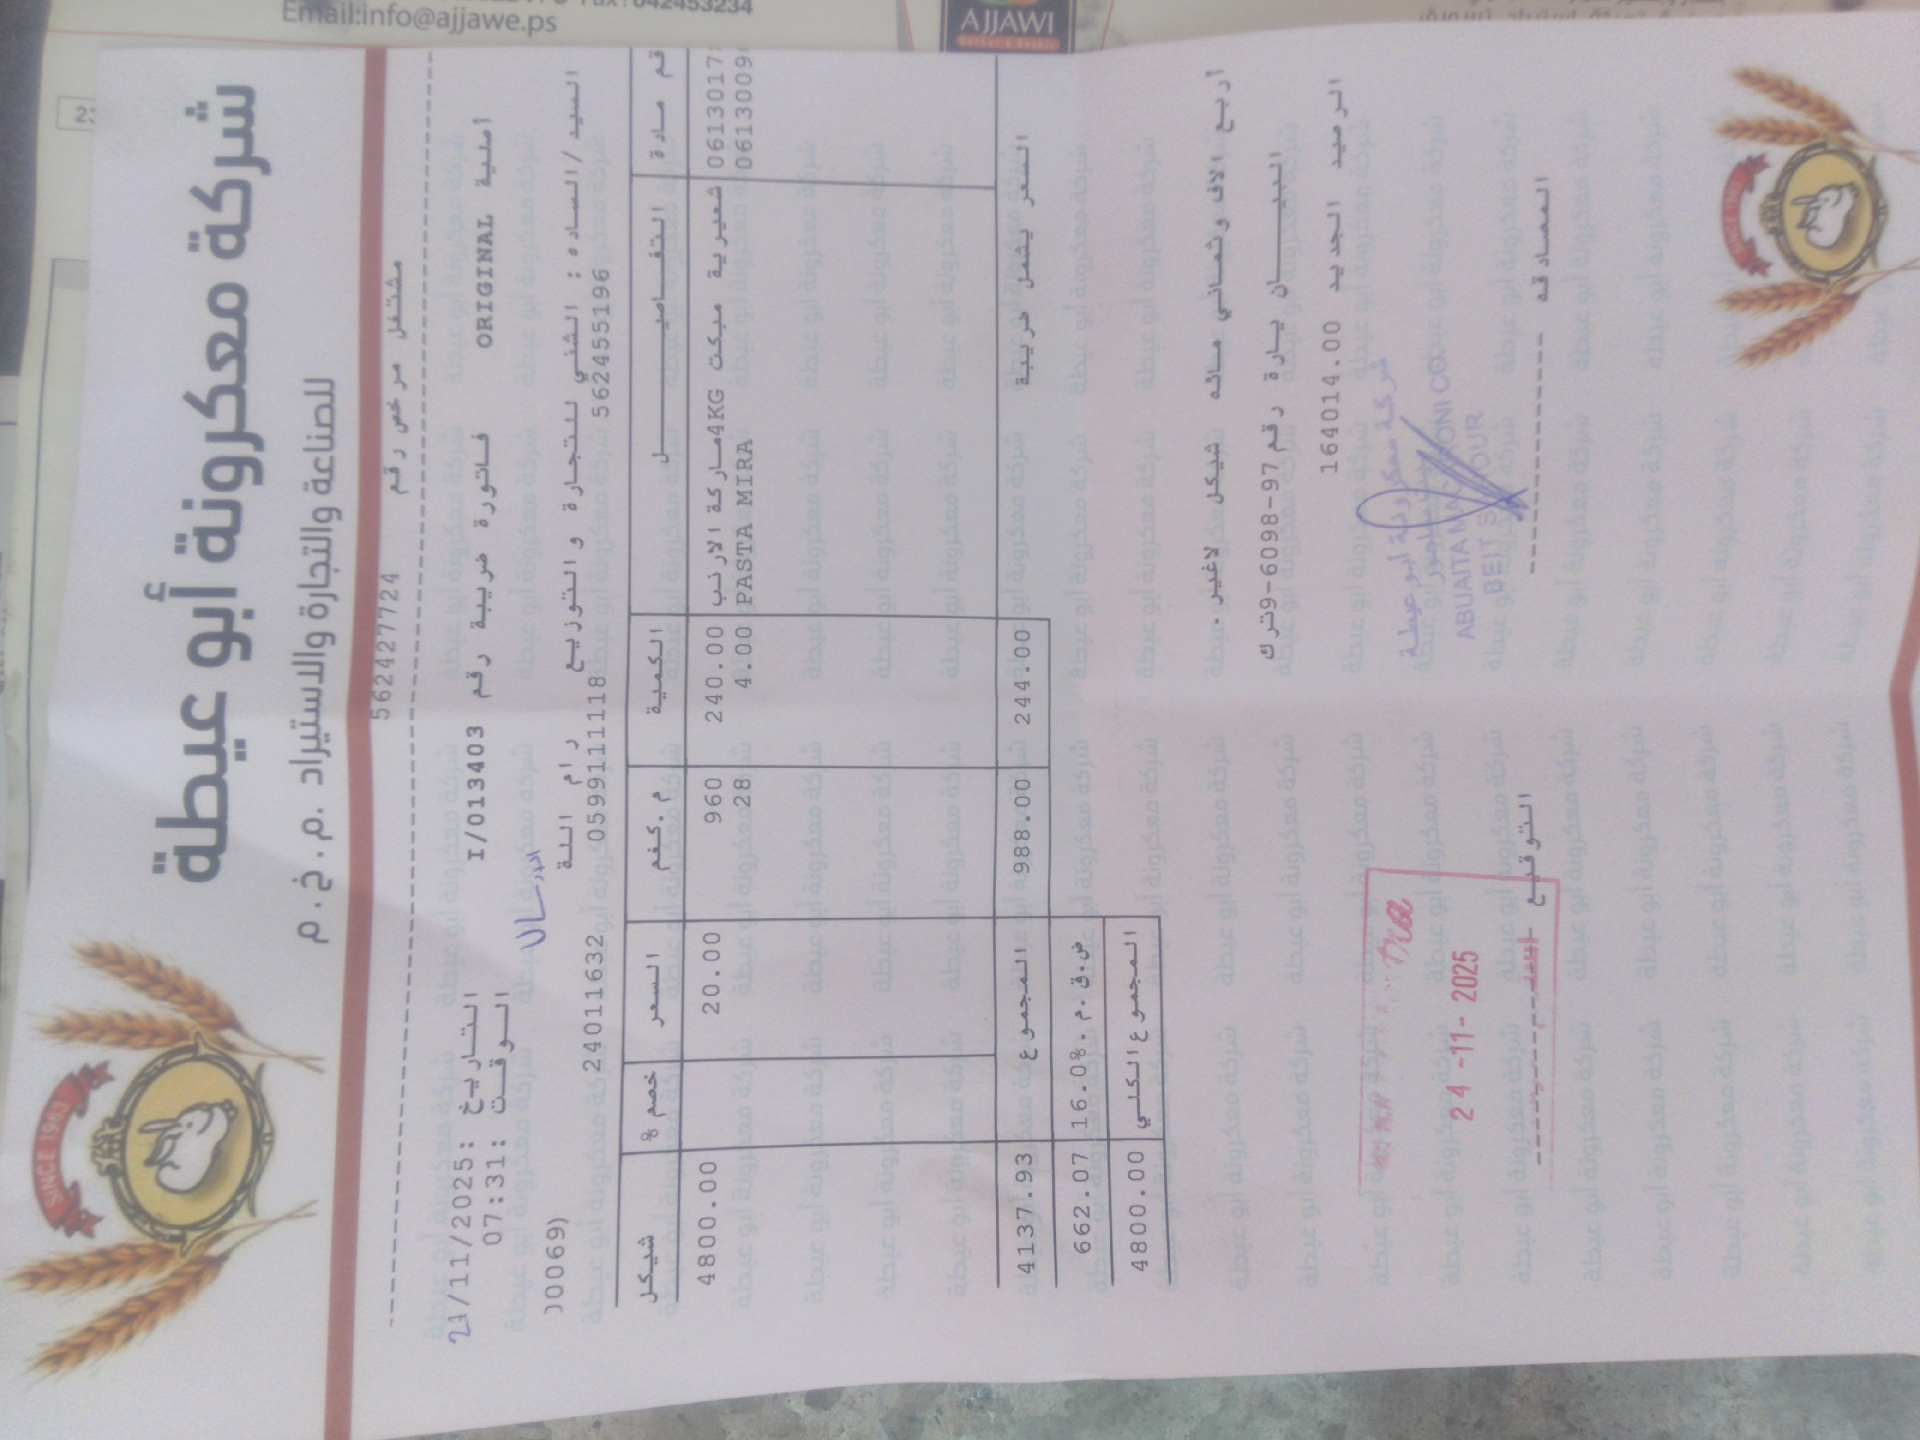 Email:info@ajjawe.ps
AJJAWI
شركة معكرونة أبو عيطة
للصناعة والتجارة والاستيراد .م.خ.م
SINCE 1963
مشتغل مرخص رقم 562427724
املية ORIGINAL فاتورة ضريبة رقم I/013403 التاريخ :24/11/2025
الوقت :07:31
السيد/الساده: الشني للتجارة و التوزيع رام الله (00069
562455196 0599111118 24011632
قم مادة التفاصيل الكمية م.كغم السعر خصم % شيكل
0613017 شعيرية مبكت 4KGماركة الارنب 240.00 960 20.00 4800.00
0613009 PASTA MIRA 4.00 28
السعر يشمل ضريبة 244.00 988.00 المجموع 4137.93
ض.ق.م .16.0% 662.07
المجموع الكلي 4800.00
اربع الاف وثماني مائه شيكل لاغير.
البيان يارة رقم 97-6098-9وترك
الرصيد الجديد 164014.00
شركة معكرونة ابو عيطة
ABUAITA MACARONI CO.
BEIT SAHOUR
24-11-2025
المصادقه التوقيع
SINCE 1963